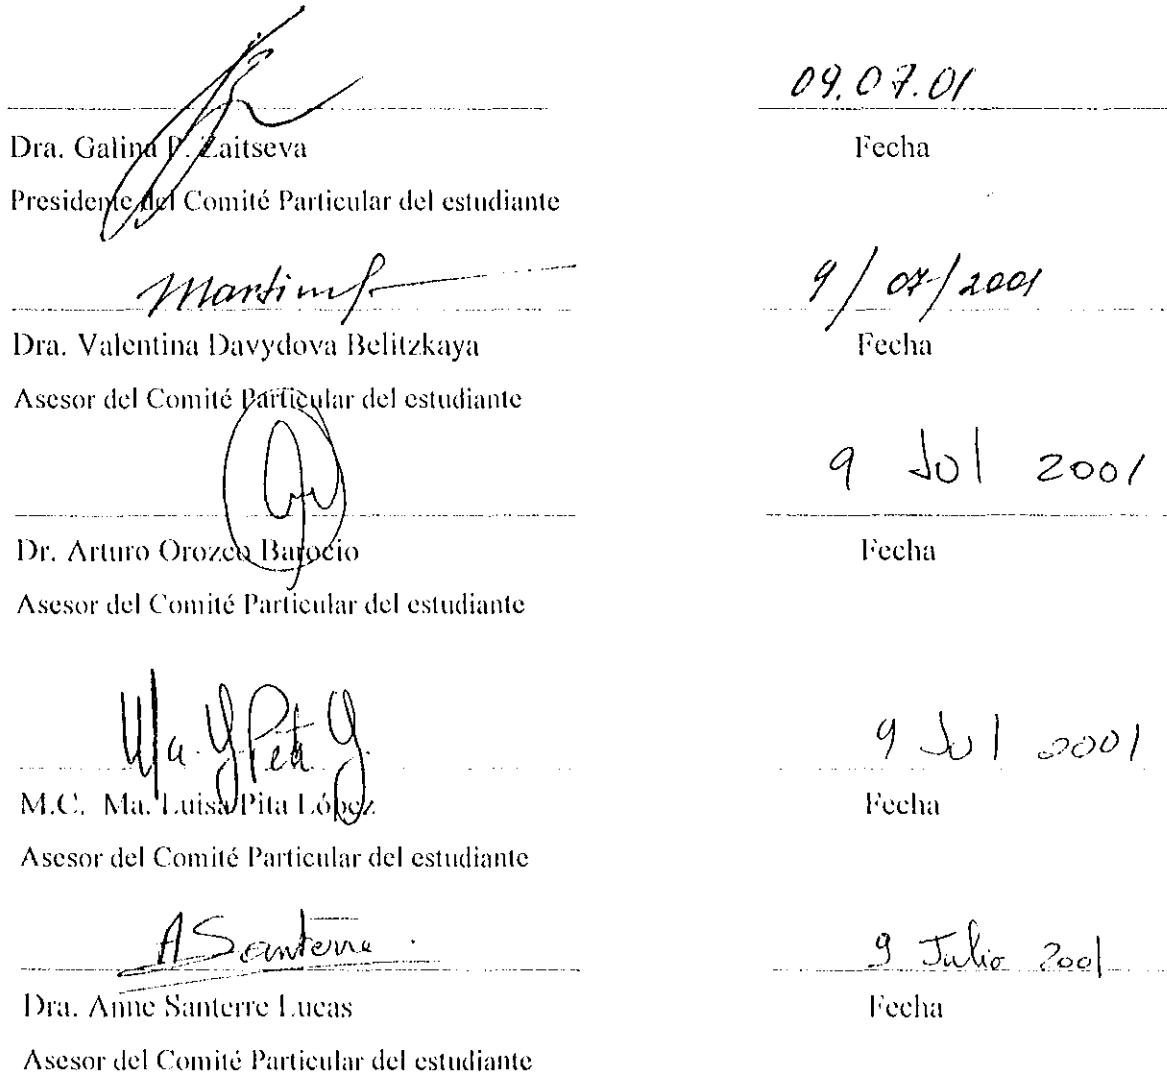 09.07.01
Dra. Galina P. Zaitseva Fecha
Presidente del Comité Particular del estudiante
9/07/2001
Dra. Valentina Davydova Belitzkaya Fecha
Asesor del Comité Particular del estudiante
9 Jul 2001
Dr. Arturo Orozco Barocio Fecha
Asesor del Comité Particular del estudiante
9 Jul 2001
M.C. Ma. Luisa Pita López Fecha
Asesor del Comité Particular del estudiante
A Santerre 9 Julio 2001
Dra. Anne Santerre Lucas Fecha
Asesor del Comité Particular del estudiante